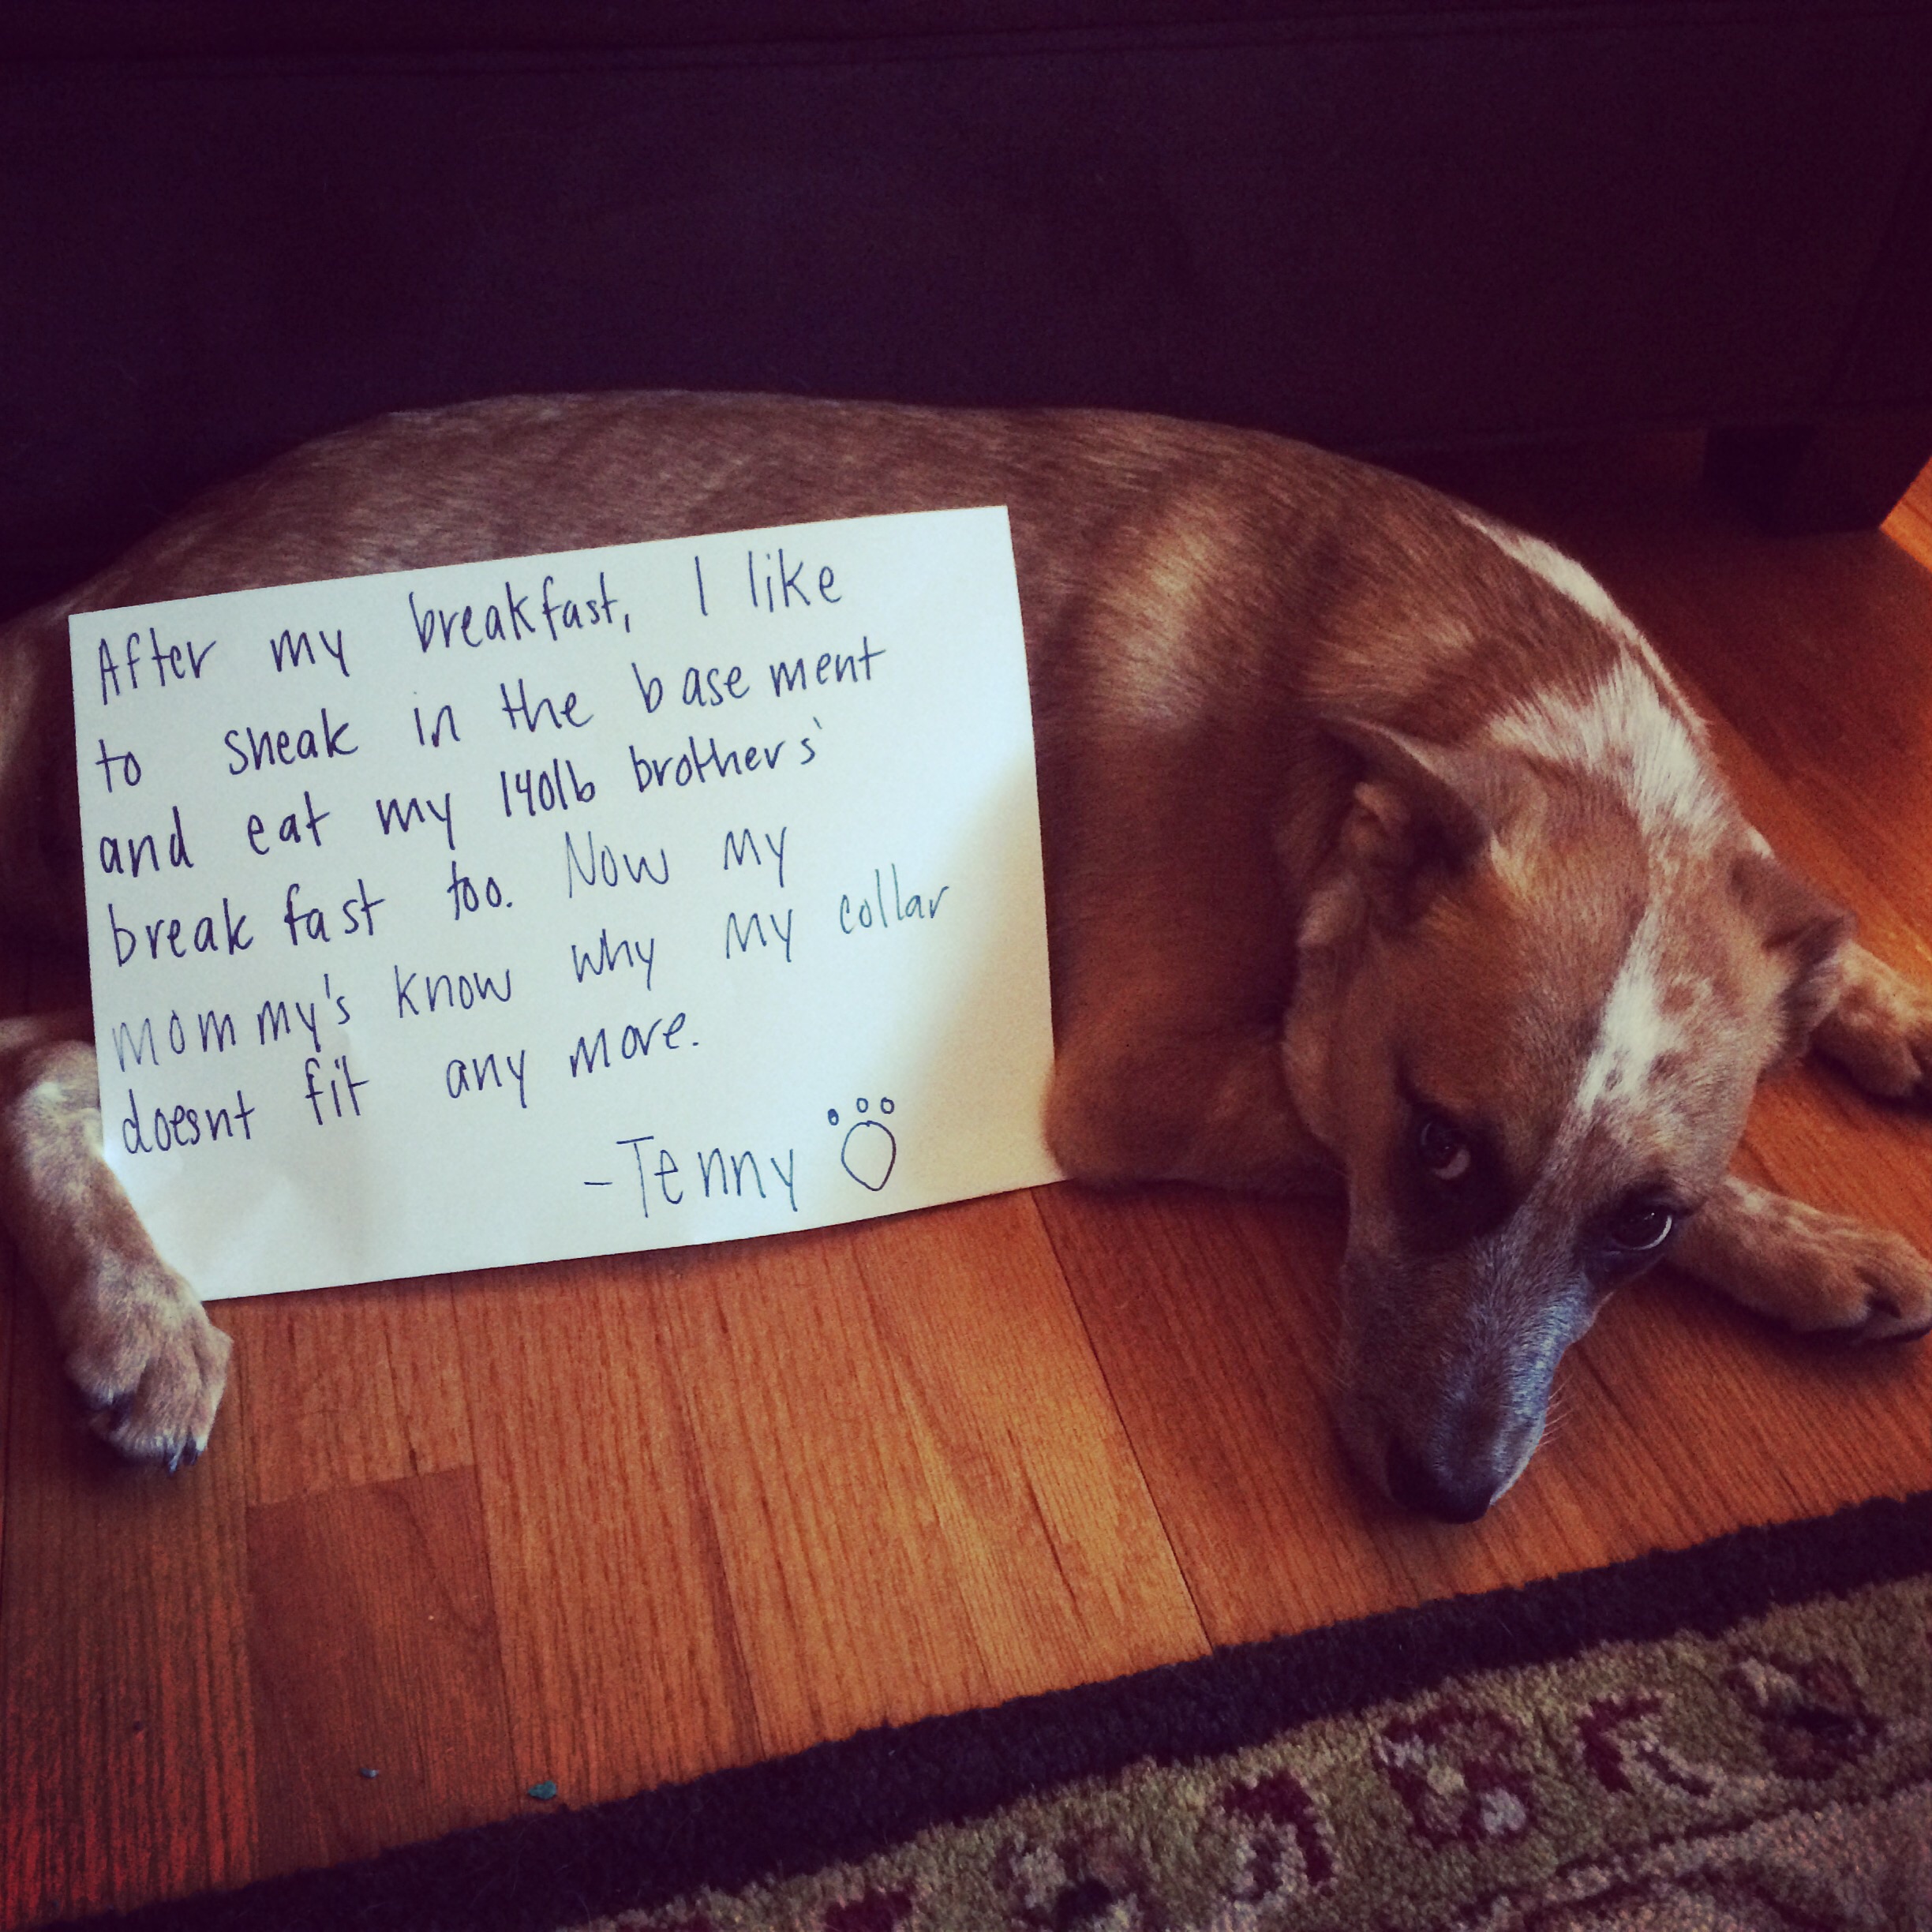 After my breakfast, I like
to sneak in the basement
and eat my 140lb brothers'
breakfast too. Now my
mommy's know why my collar
doesnt fit any more.
-Tenny